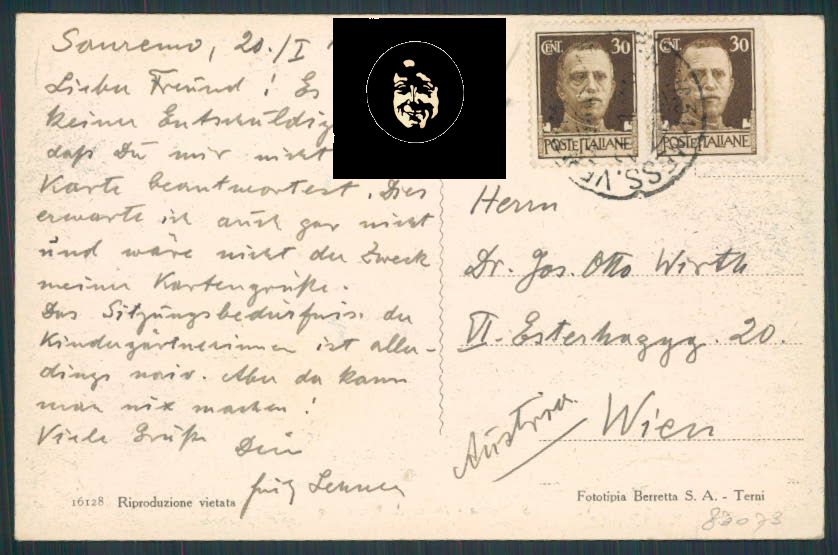 Sanremo, 20./I
Lieber Freund! Es
keiner Entschuldig
daß Du mir nicht
Karte beantwortest. Dies
erwarte ich auch gar nicht
und wäre nicht der Zweck
meiner Kartengrüße.
Das Sitzungsbedürfnis der
Kindergärtnerinnen ist aller-
dings naiv. Aber da kann
man nix machen!
Viele Grüße Dein
Fritz
16128 Riproduzione vietata
CENT. 30
POSTE ITALIANE
CENT. 30
POSTE ITALIANE
Herrn
Dr. Jos. Otto Wirth
VI. Esterhazyg. 20.
Wien
Austria
Fototipia Berretta S. A. - Terni